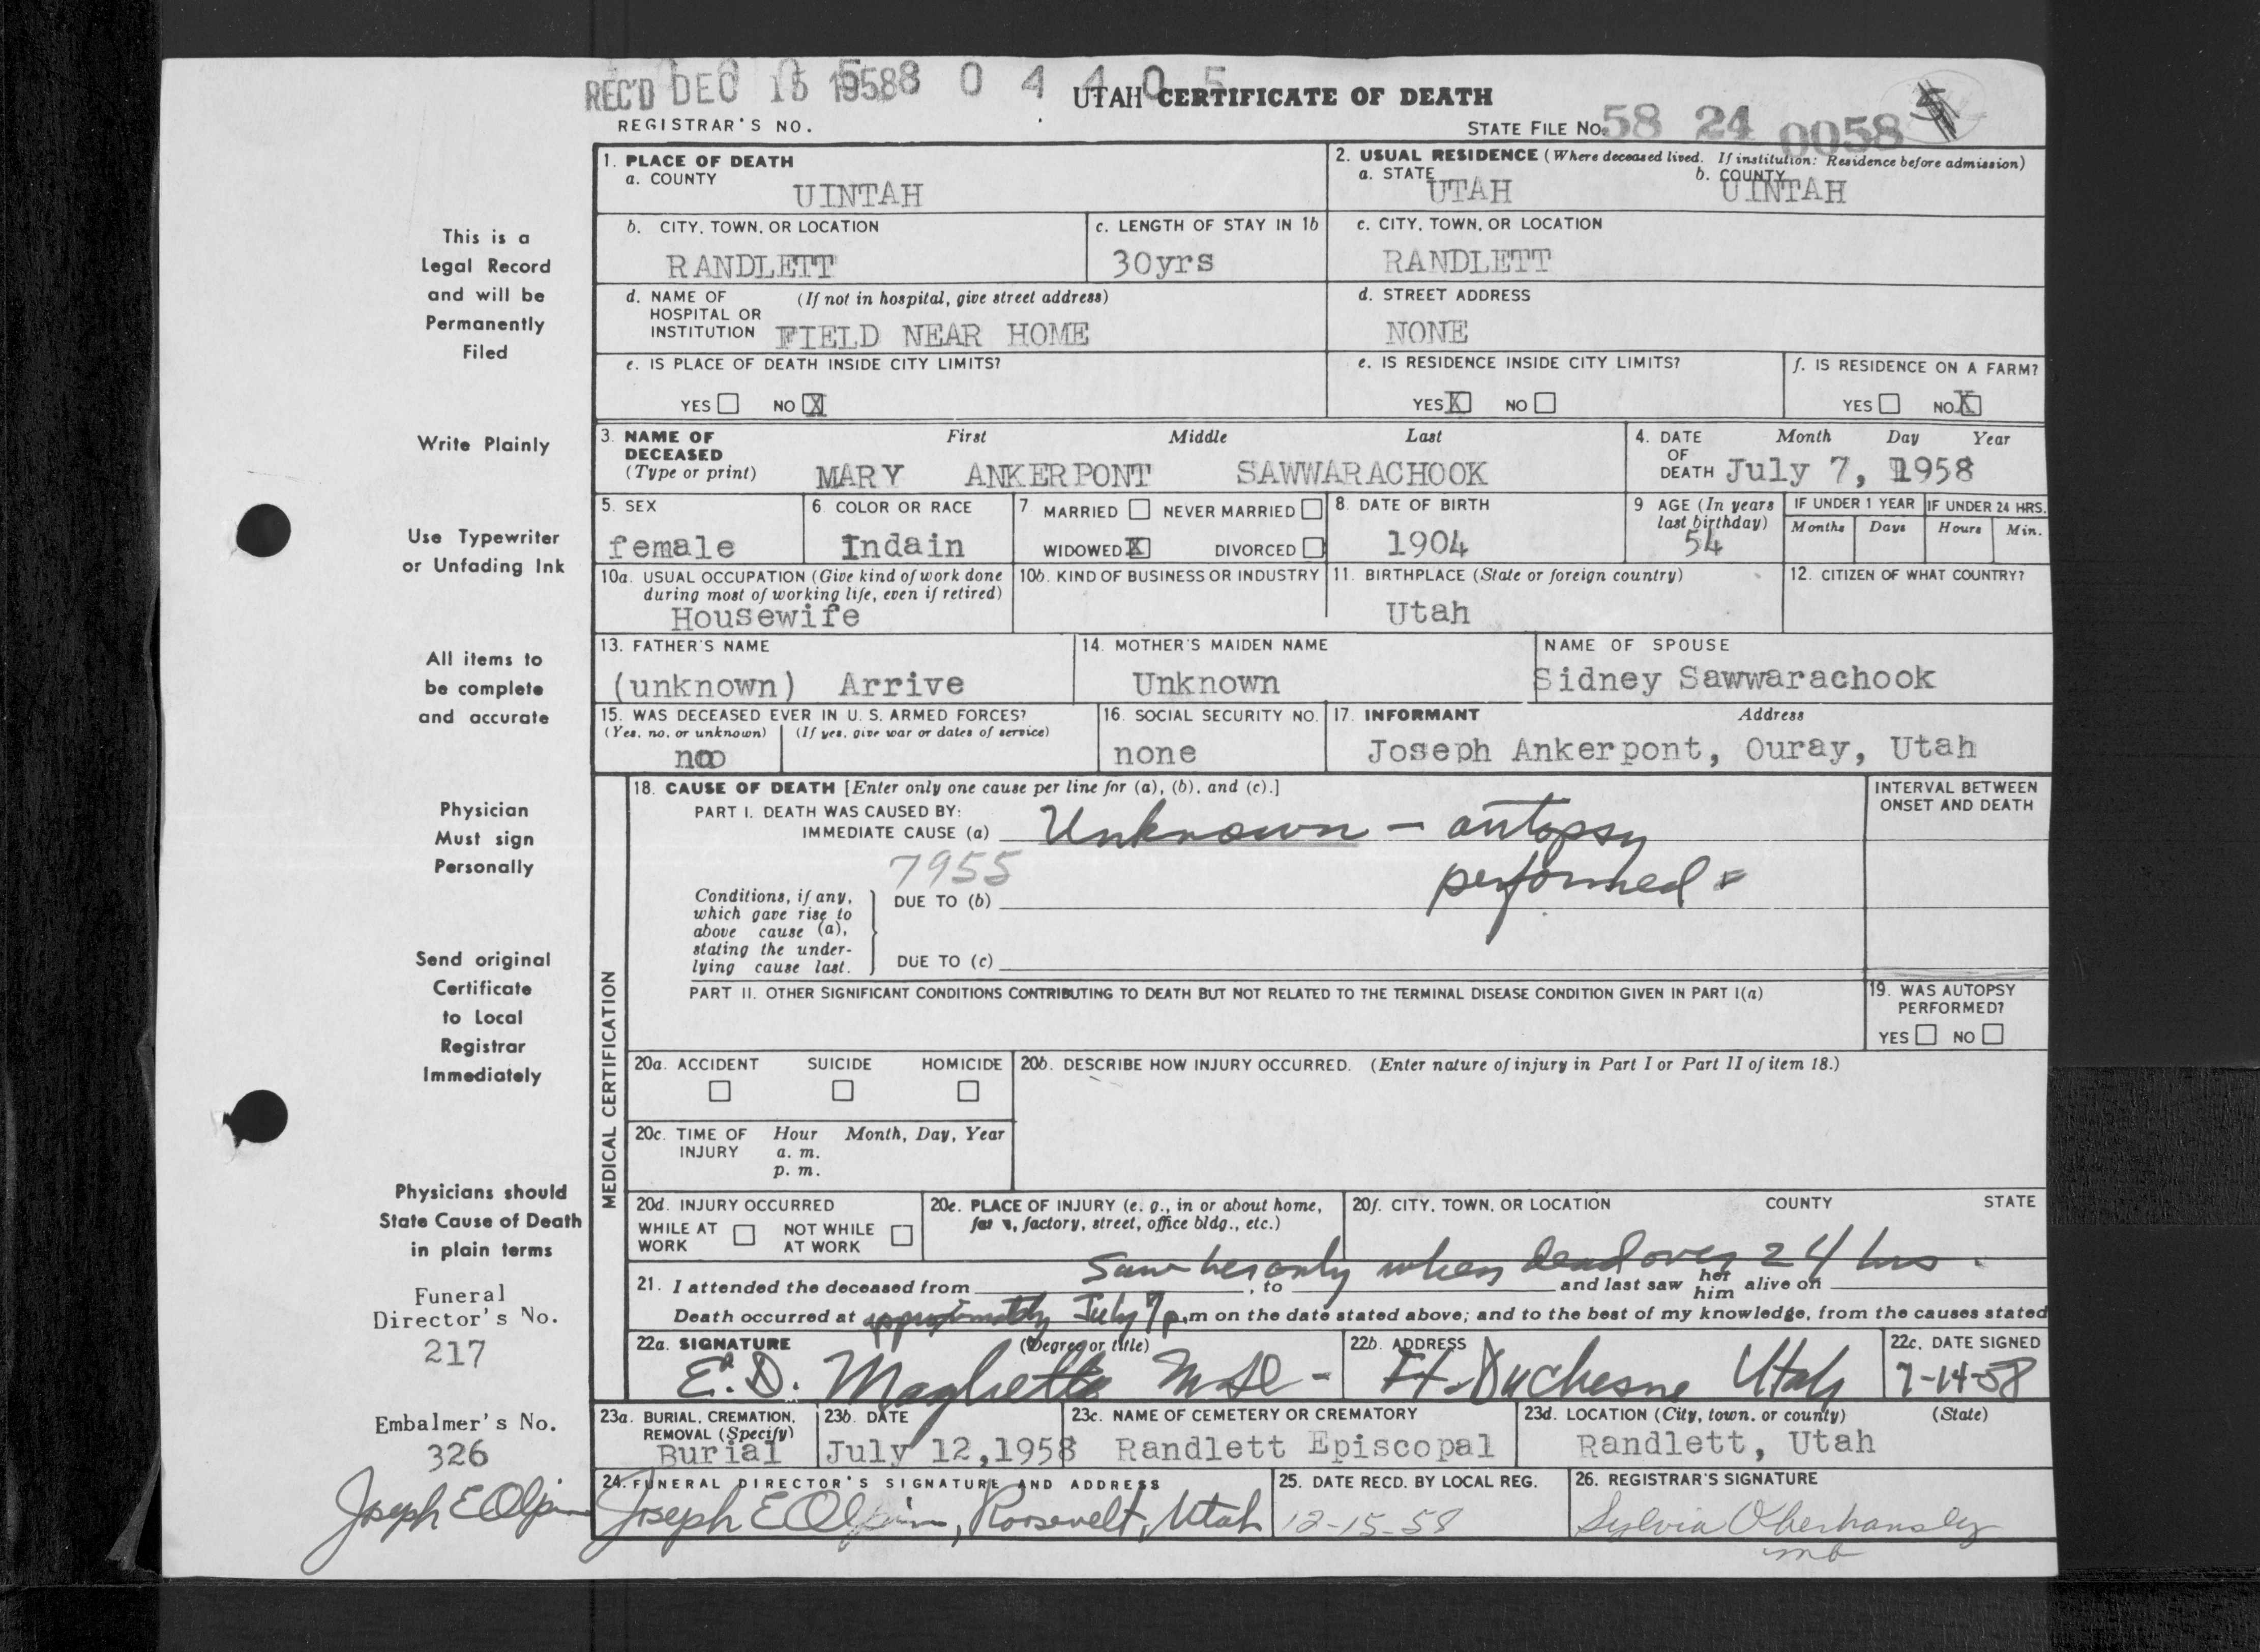 REC'D DEC 15 1958 8 0 4 4 0 5
UTAH CERTIFICATE OF DEATH
REGISTRAR'S NO.
STATE FILE No. 58 24 0058
1. PLACE OF DEATH
a. COUNTY
UINTAH
2. USUAL RESIDENCE (Where deceased lived. If institution: Residence before admission)
a. STATE
UTAH
b. COUNTY
UINTAH
b. CITY, TOWN, OR LOCATION
RANDLETT
c. LENGTH OF STAY IN 1b
30yrs
c. CITY, TOWN, OR LOCATION
RANDLETT
d. NAME OF (If not in hospital, give street address)
HOSPITAL OR
INSTITUTION FIELD NEAR HOME
d. STREET ADDRESS
NONE
e. IS PLACE OF DEATH INSIDE CITY LIMITS?
YES NO X
e. IS RESIDENCE INSIDE CITY LIMITS?
YES X NO
f. IS RESIDENCE ON A FARM?
YES NO X
3. NAME OF First Middle Last
DECEASED
(Type or print) MARY ANKERPONT SAWWARACHOOK
4. DATE Month Day Year
OF
DEATH July 7, 1958
5. SEX
female
6. COLOR OR RACE
Indain
7 MARRIED NEVER MARRIED
WIDOWED X DIVORCED
8. DATE OF BIRTH
1904
9 AGE (In years
last birthday)
54
IF UNDER 1 YEAR
Months Days
IF UNDER 24 HRS.
Hours Min.
10a. USUAL OCCUPATION (Give kind of work done
during most of working life, even if retired)
Housewife
10b. KIND OF BUSINESS OR INDUSTRY
11. BIRTHPLACE (State or foreign country)
Utah
12. CITIZEN OF WHAT COUNTRY?
13. FATHER'S NAME
(unknown) Arrive
14. MOTHER'S MAIDEN NAME
Unknown
NAME OF SPOUSE
Sidney Sawwarachook
15. WAS DECEASED EVER IN U. S. ARMED FORCES?
(Yes, no, or unknown) (If yes, give war or dates of service)
no
16. SOCIAL SECURITY NO.
none
17. INFORMANT Address
Joseph Ankerpont, Ouray, Utah
MEDICAL CERTIFICATION
18. CAUSE OF DEATH [Enter only one cause per line for (a), (b), and (c).]
PART I. DEATH WAS CAUSED BY:
IMMEDIATE CAUSE (a) Unknown - autopsy
performed
7955
Conditions, if any,
which gave rise to
above cause (a),
stating the under-
lying cause last.
DUE TO (b)
DUE TO (c)
INTERVAL BETWEEN
ONSET AND DEATH
PART II. OTHER SIGNIFICANT CONDITIONS CONTRIBUTING TO DEATH BUT NOT RELATED TO THE TERMINAL DISEASE CONDITION GIVEN IN PART I(a)
19. WAS AUTOPSY
PERFORMED?
YES NO
20a. ACCIDENT SUICIDE HOMICIDE
20b. DESCRIBE HOW INJURY OCCURRED. (Enter nature of injury in Part I or Part II of item 18.)
20c. TIME OF Hour Month, Day, Year
INJURY a. m.
p. m.
20d. INJURY OCCURRED
WHILE AT NOT WHILE
WORK AT WORK
20e. PLACE OF INJURY (e. g., in or about home,
factory, street, office bldg., etc.)
20f. CITY, TOWN, OR LOCATION COUNTY STATE
Saw her only when dead over 24 hrs.
21. I attended the deceased from , to and last saw her him alive on
Death occurred at approximately July 7 p.m on the date stated above; and to the best of my knowledge, from the causes stated
22a. SIGNATURE (Degree or title)
E. D. Maglietto M.D. -
22b. ADDRESS
Ft. Duchesne Utah
22c. DATE SIGNED
7-14-58
23a. BURIAL, CREMATION,
REMOVAL (Specify)
Burial
23b. DATE
July 12,1958
23c. NAME OF CEMETERY OR CREMATORY
Randlett Episcopal
23d. LOCATION (City, town, or county) (State)
Randlett, Utah
24. FUNERAL DIRECTOR'S SIGNATURE AND ADDRESS
Joseph E Olpin, Roosevelt, Utah
25. DATE RECD. BY LOCAL REG.
12-15-58
26. REGISTRAR'S SIGNATURE
Sylvia Oberhansley
mb
This is a
Legal Record
and will be
Permanently
Filed
Write Plainly
Use Typewriter
or Unfading Ink
All items to
be complete
and accurate
Physician
Must sign
Personally
Send original
Certificate
to Local
Registrar
Immediately
Physicians should
State Cause of Death
in plain terms
Funeral
Director's No.
217
Embalmer's No.
326
Joseph E Olpin